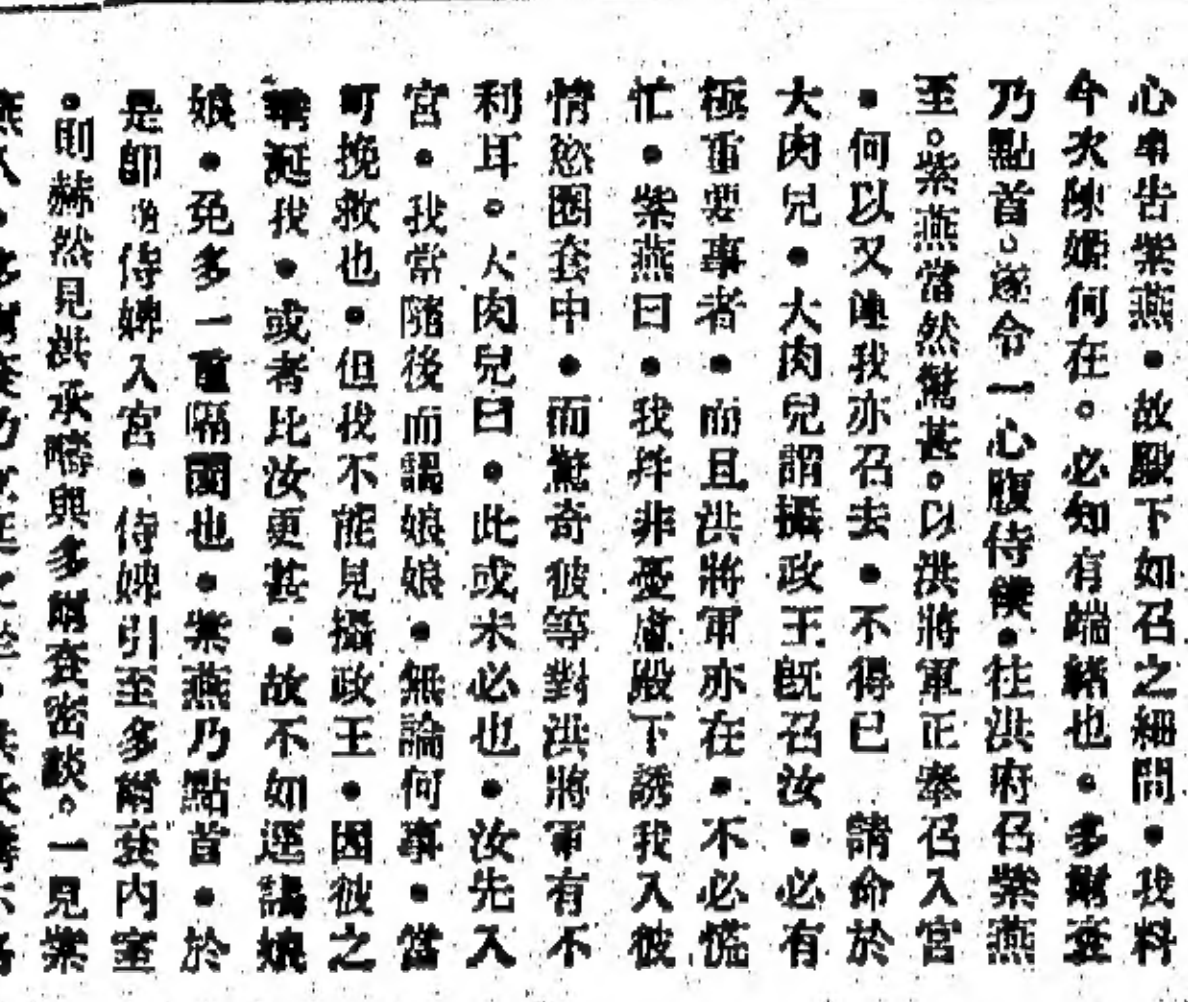 心串告紫燕●故殿下如召之細問●我料
今次陳嫄何在。必知有端緖也●多爾袞
乃點首。遂令一心腹侍僕●往洪府召紫燕
至。紫燕當然驚甚。以洪將軍正奉召入宮
●何以又連我亦召去●不得已 請命於
大肉兒●大肉兒謂攝政王旣召汝●必有
極重要事者●而且洪將軍亦在●不必慌
忙●紫燕曰●我幷非憂慮殿下誘我入彼
情慾圈套中●而驚奇彼等對洪將軍有不
利耳。大肉兒曰●此或未必也●汝先入
宮●我當隨後而謁娘娘●無論何事●當
可挽救也●但我不能見攝政王●因彼之
垂涎我●或者比汝更甚●故不如逕謁娘
娘●免多一重隔閡也●紫燕乃點首●於
是卽 侍婢入宮●侍婢引至多爾袞內室
●則赫然見洪承疇與多爾袞密談。一見紫